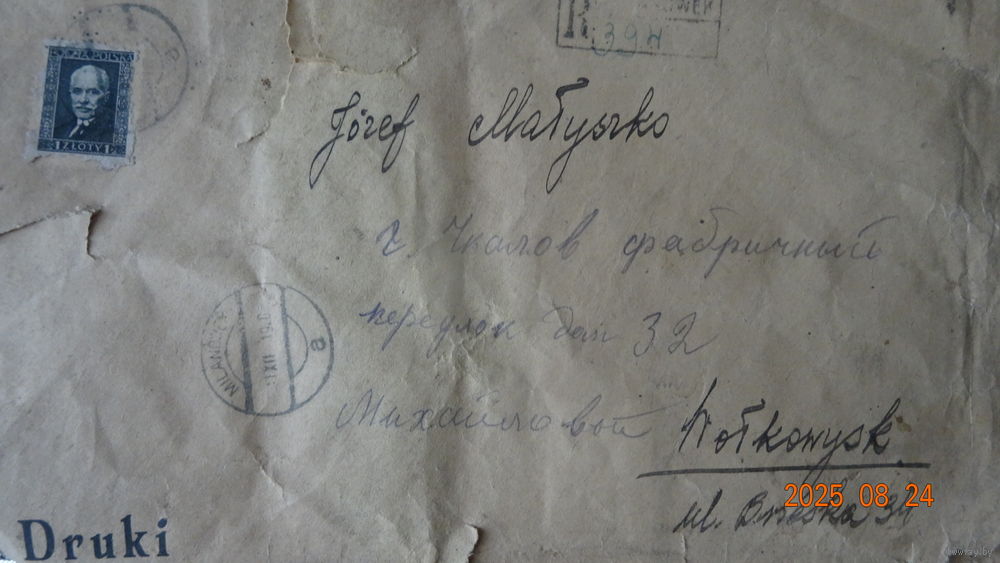 R
394
POCZTA POLSKA
1 ZŁOTY 1
Józef Małyszko
г. Чкалов фабричный
переулок дом 32
Михайловой
Wołkowysk
ul. Brzeska 34
XII
a
Druki
2025 08 24